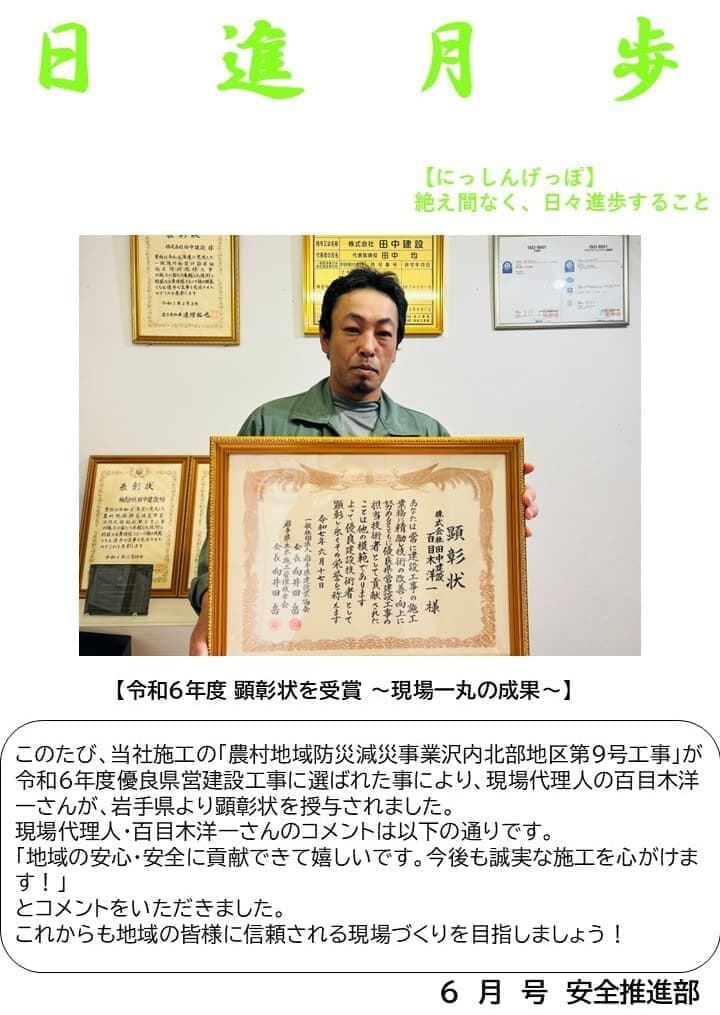 日進月歩
【にっしんげっぽ】
絶え間なく、日々進歩すること
表彰状
株式会社田中建設 様
岩手県知事 達増拓也
株式会社 田中建設
代表取締役 田中 均
ISO 9001
ISO 9001
表彰状
株式会社田中建設 様
顕彰状
株式会社田中建設
百目木洋一 様
あなたは常に建設工事の施工
業務に精励し技術の改善・向上に
努めるとともに優良県営建設工事の
担当技術者として貢献された
ことは他の模範であります
よって優良建設技術者として
顕彰し永くその栄誉を称えます
令和七年六月十七日
一般社団法人岩手県建設業協会
会長 向井田 岳
岩手県土木施工管理技士会
会長 向井田 岳
【令和6年度 顕彰状を受賞 ～現場一丸の成果～】
このたび、当社施工の「農村地域防災減災事業沢内北部地区第9号工事」が
令和6年度優良県営建設工事に選ばれた事により、現場代理人の百目木洋
一さんが、岩手県より顕彰状を授与されました。
現場代理人・百目木洋一さんのコメントは以下の通りです。
「地域の安心・安全に貢献できて嬉しいです。今後も誠実な施工を心がけま
す！」
とコメントをいただきました。
これからも地域の皆様に信頼される現場づくりを目指しましょう！
6 月 号 安全推進部